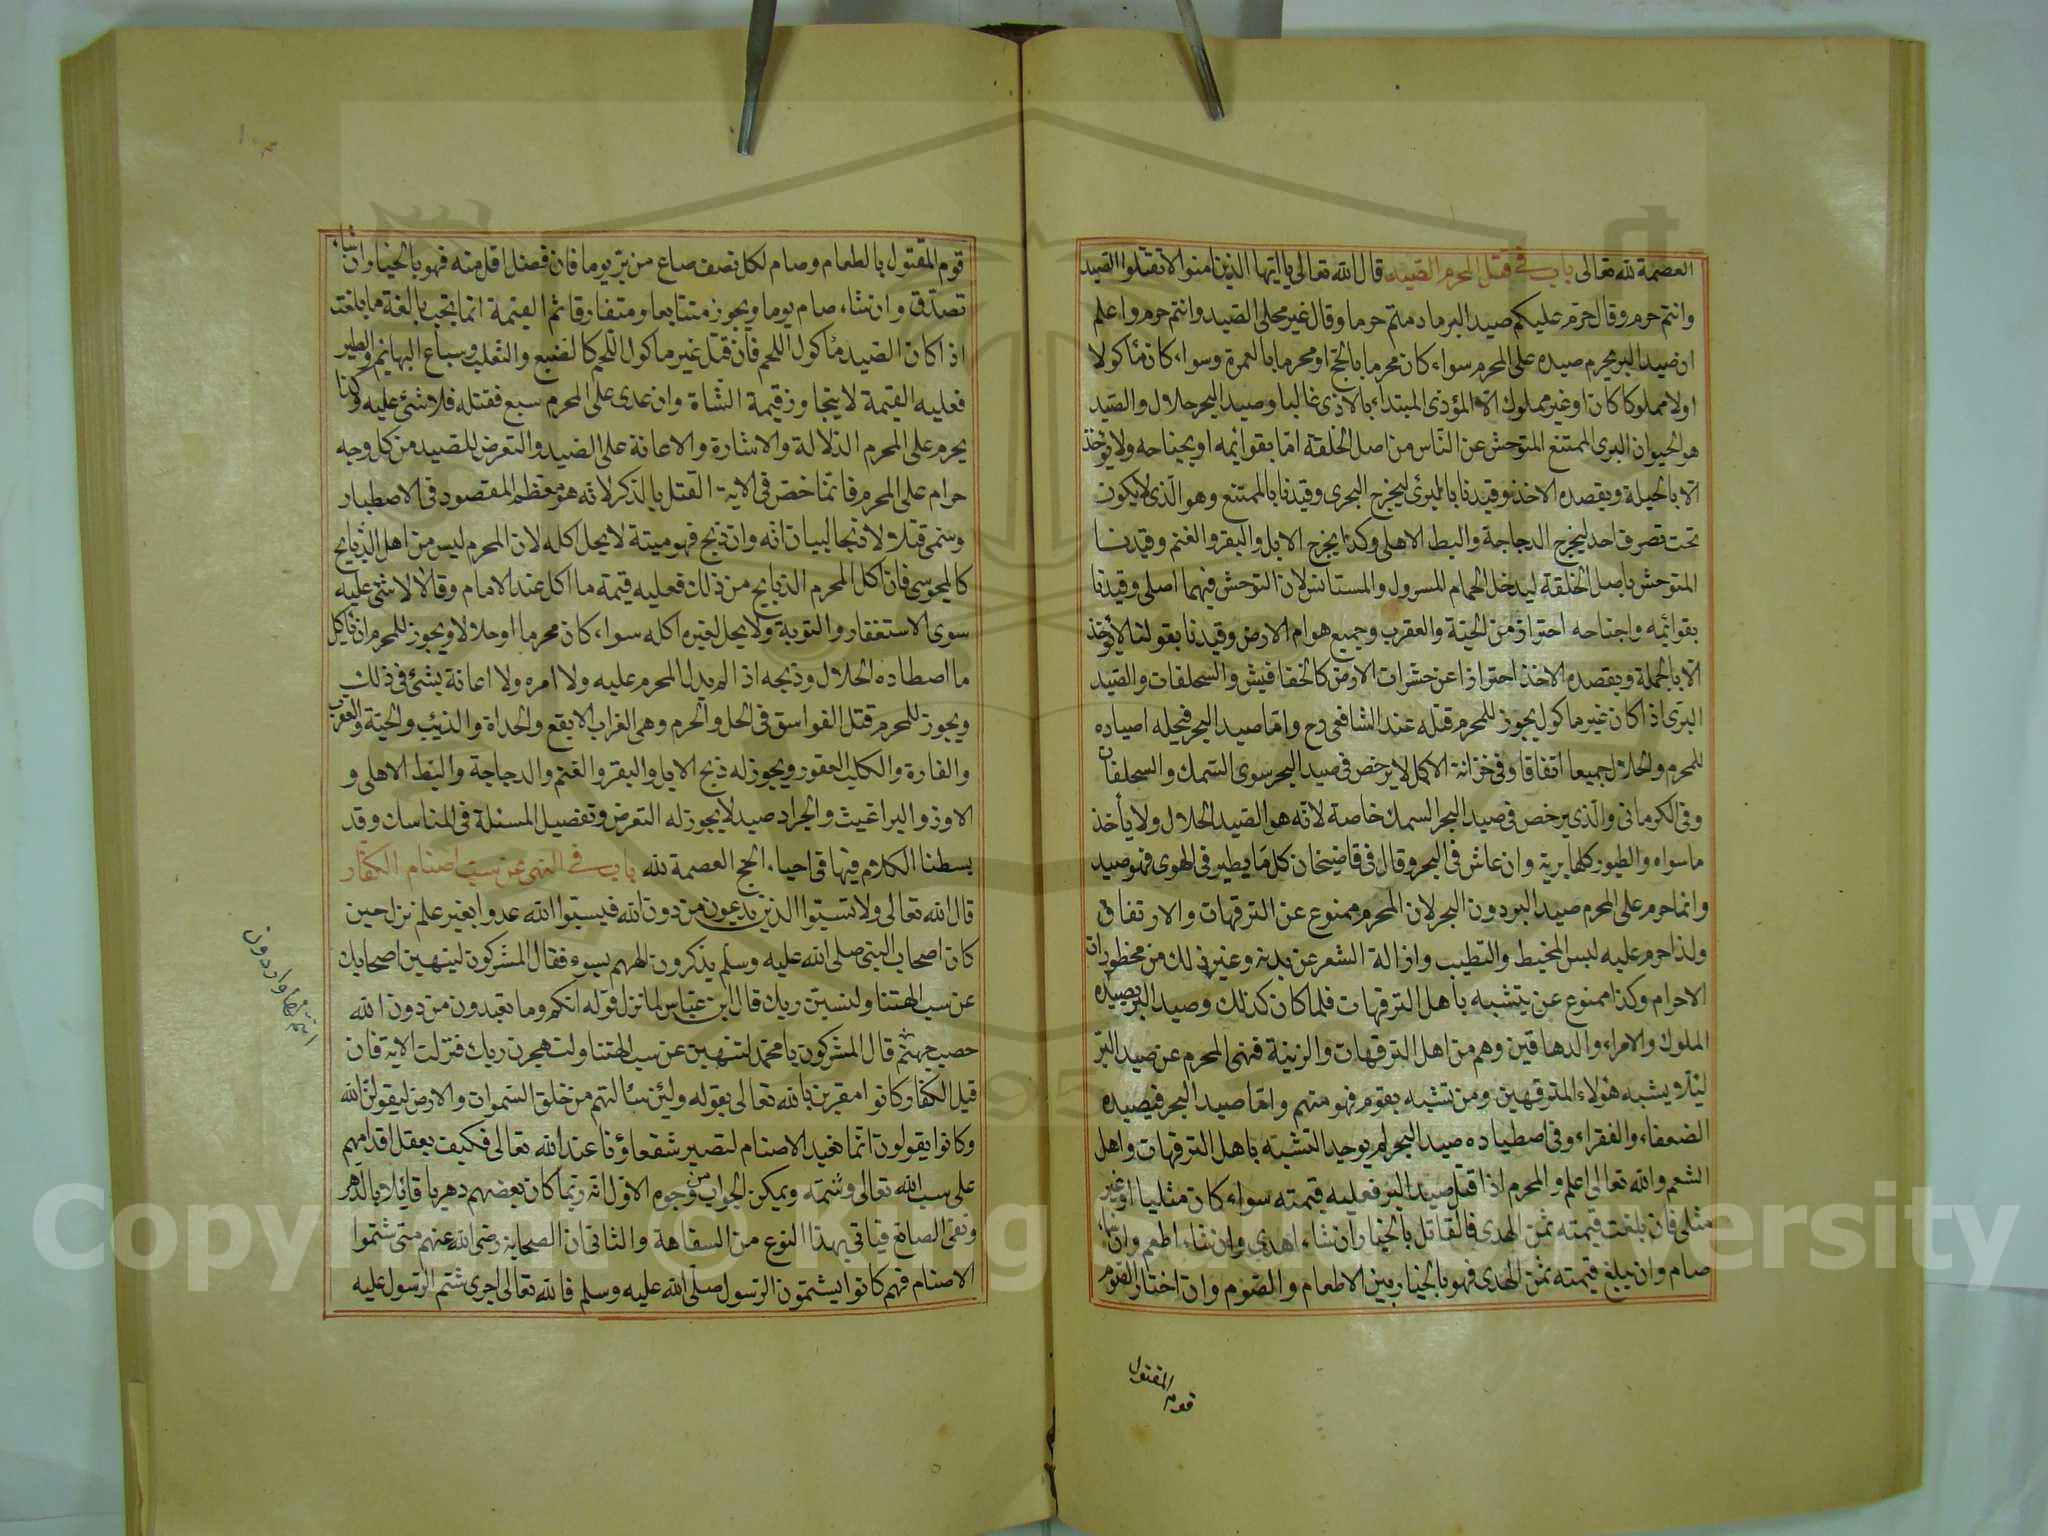 العصمة لله تعالى باب في قتل المحرم الصيد قال الله تعالى يا ايها الذين امنوا لا تقتلوا الصيد
وانتم حرم وقال حرم عليكم صيد البر ما دمتم حرما وقال غير محلى الصيد وانتم حرم واعلم
ان صيد البر يحرم صيده على المحرم سواء كان محرما بالحج او محرما بالعمرة وسواء كان مأكولا
اولا مملوكا كان او غير مملوك الا المؤذى المبتداء بالاذى غالبا وصيد البحر حلال والصيد
هو الحيوان البرى الممتنع المتوحش عن الناس من اصل الخلقة اما بقوائمه او بجناحه ولا يؤخذ
الا بالحيلة وبقصده الاخذ وقيدنا بالبرئ ليخرج البحرى وقيدنا بالممتنع وهو الذى لا يكون
تحت تصرف احد ليخرج الدجاجة والبط الاهلى وكذا يخرج الابل والبقر والغنم وقيدنا
المتوحش باصل الخلقة ليدخل الحمام المسرول والمستانس لان التوحش فيهما اصلى وقيدنا
بقوائمه واجناحه احتراز من الحية والعقرب وجميع هوام الارض وقيدنا بقولنا لا يؤخذ
الا بالحملة وبقصده الاخذ احترازا عن حشرات الارض كالخفافيش والسحلفات والصيد
البرى اذا كان غير ماكول يجوز للمحرم قتله عند الشافعى رح واما صيد البحر فيحله اصياده
للمحرم والحلال جميعا اتفاقا وفى خزانة الاكمل لا يرخص فى صيد البحر سوى السمك والسحلفات
وفى الكرمانى والذى يرخص فى صيد البحر السمك خاصة لانه هو الصيد الحلال ولا يأخذ
ما سواه والطيور كلها برية وان عاش فى البحر وقال فى قاضيخان كل ما يطير فى الهوى فهو صيد
وانما حرم على المحرم صيد البر دون البحر لان المحرم ممنوع عن الترفهات والارتفاق
ولذا حرم عليه لبس المخيط والتطيب وازالة الشعر عن بدنه وغير ذلك من محظورات
الاحرام وكذا ممنوع عن يتشبه باهل الترفهات فلما كان كذلك وصيد البر يصيده
الملوك والامراء والدهاقين وهم من اهل الترفهات والزينة فنهى المحرم عن صيد البر
ليلا يشبه هؤلاء المترفهين ومن تشبه بقوم فهو منهم واما صيد البحر فيصيده
الضعفاء والفقراء وفى اصطياده صيد البحر لم يوجد التشبه باهل الترفهات واهل
الشعم والله تعالى اعلم والمحرم اذا قتل صيد البر فعليه قيمته سواء كان مثليا او غير
مثلى فان بلغت قيمته ثمن الهدى فالقاتل بالخيار ان شاء اهدى وان شاء اطعم وان شاء
صام وان يبلغ قيمته ثمن الهدى فهو بالخيار بين الاطعام والصوم وان اختار الصوم
قوم المقتول
قوم المقتول بالطعام وصام لكل نصف صاع من بر يوما فان فضل اقل منه فهو بالخيار ان شاء
تصدق وان شاء صام يوما ويجوز متتابعا ومتفارقا ثم القيمة انما يجب بالغة ما بلغت
اذا كان الصيد مأكول اللحم فان قتل غير ماكول اللحم كالضبع والثعلب وسباع البهائم والطير
فعليه القيمة لا يتجاوز قيمة الشاة وان عدى على المحرم سبع فقتله فلا شئ عليه وكذا
يحرم على المحرم الدلالة والاشارة والاعانة على الصيد والتعرض للصيد من كل وجه
حرام على المحرم فانما خص فى الاية القتل بالذكر لانه هو معظم المقصود فى الاصطياد
وسمى قتلا لا ذبحا لبيان انه وان ذبح فهو ميتة لا يحل اكله لان المحرم ليس من اهل الذبايح
كالمجوسى فان اكل المحرم الذبايح من ذلك فعليه قيمته ما اكل عند الامام وقالا لا شئ عليه
سوى الاستغفار والتوبة ولا يحل لغيره اكله سواء كان محرما او حلالا ويجوز للمحرم ان يأكل
ما اصطاده الحلال وذبحه اذا لم يدل المحرم عليه ولا امره ولا اعانة بشئ فى ذلك
ويجوز للمحرم قتل الفواسق فى الحل والحرم وهى الغراب الابقع والحداة والذيب والحية والعقرب
والفارة والكلب العقور ويجوز له ذبح الابل والبقر والغنم والدجاجة والبط الاهلى و
الاوز والبراغيث والجراد صيد لا يجوز له التعرض وتفصيل المسئلة فى المناسك وقد
بسطنا الكلام فيها فى احياء الحج العصمة لله باب في النهى عن سب اصنام الكفار
قال الله تعالى ولا تسبوا الذين يدعون من دون الله فيسبوا الله عدوا بغير علم نزل حين
كان اصحاب النبى صلى الله عليه وسلم يذكرون الهتهم بسوء فقال المشركون لينتهين اصحابك
عن سب الهتنا ولنسبن ربك قال ابن عباس لما نزل قوله انكم وما تعبدون من دون الله
حصب جهنم قال المشركون يا محمد لتنتهين عن سب الهتنا ولنهجرن ربك فنزلت الاية فان
قيل الكفار كانوا مقرين بالله تعالى بقوله ولئن سألتهم من خلق السموات والارض ليقولن الله
وكانوا يقولون انما نعبد الاصنام لتصير شفعاؤنا عند الله تعالى فكيف يعقل اقدامهم
على سب الله تعالى وشتمه ويمكن الجواب من وجوه الاول انه ربما كان بعضهم دهريا قائلا بالدهر
ونفى الصانع فياتى بهذا النوع من السفاهة والثانى ان الصحابة رضى الله عنهم متى شتموا
الاصنام فهم كانوا يشتمون الرسول صلى الله عليه وسلم فالله تعالى اجرى شتم الرسول عليه
انتم لها واردون
Copyright © King Saud University